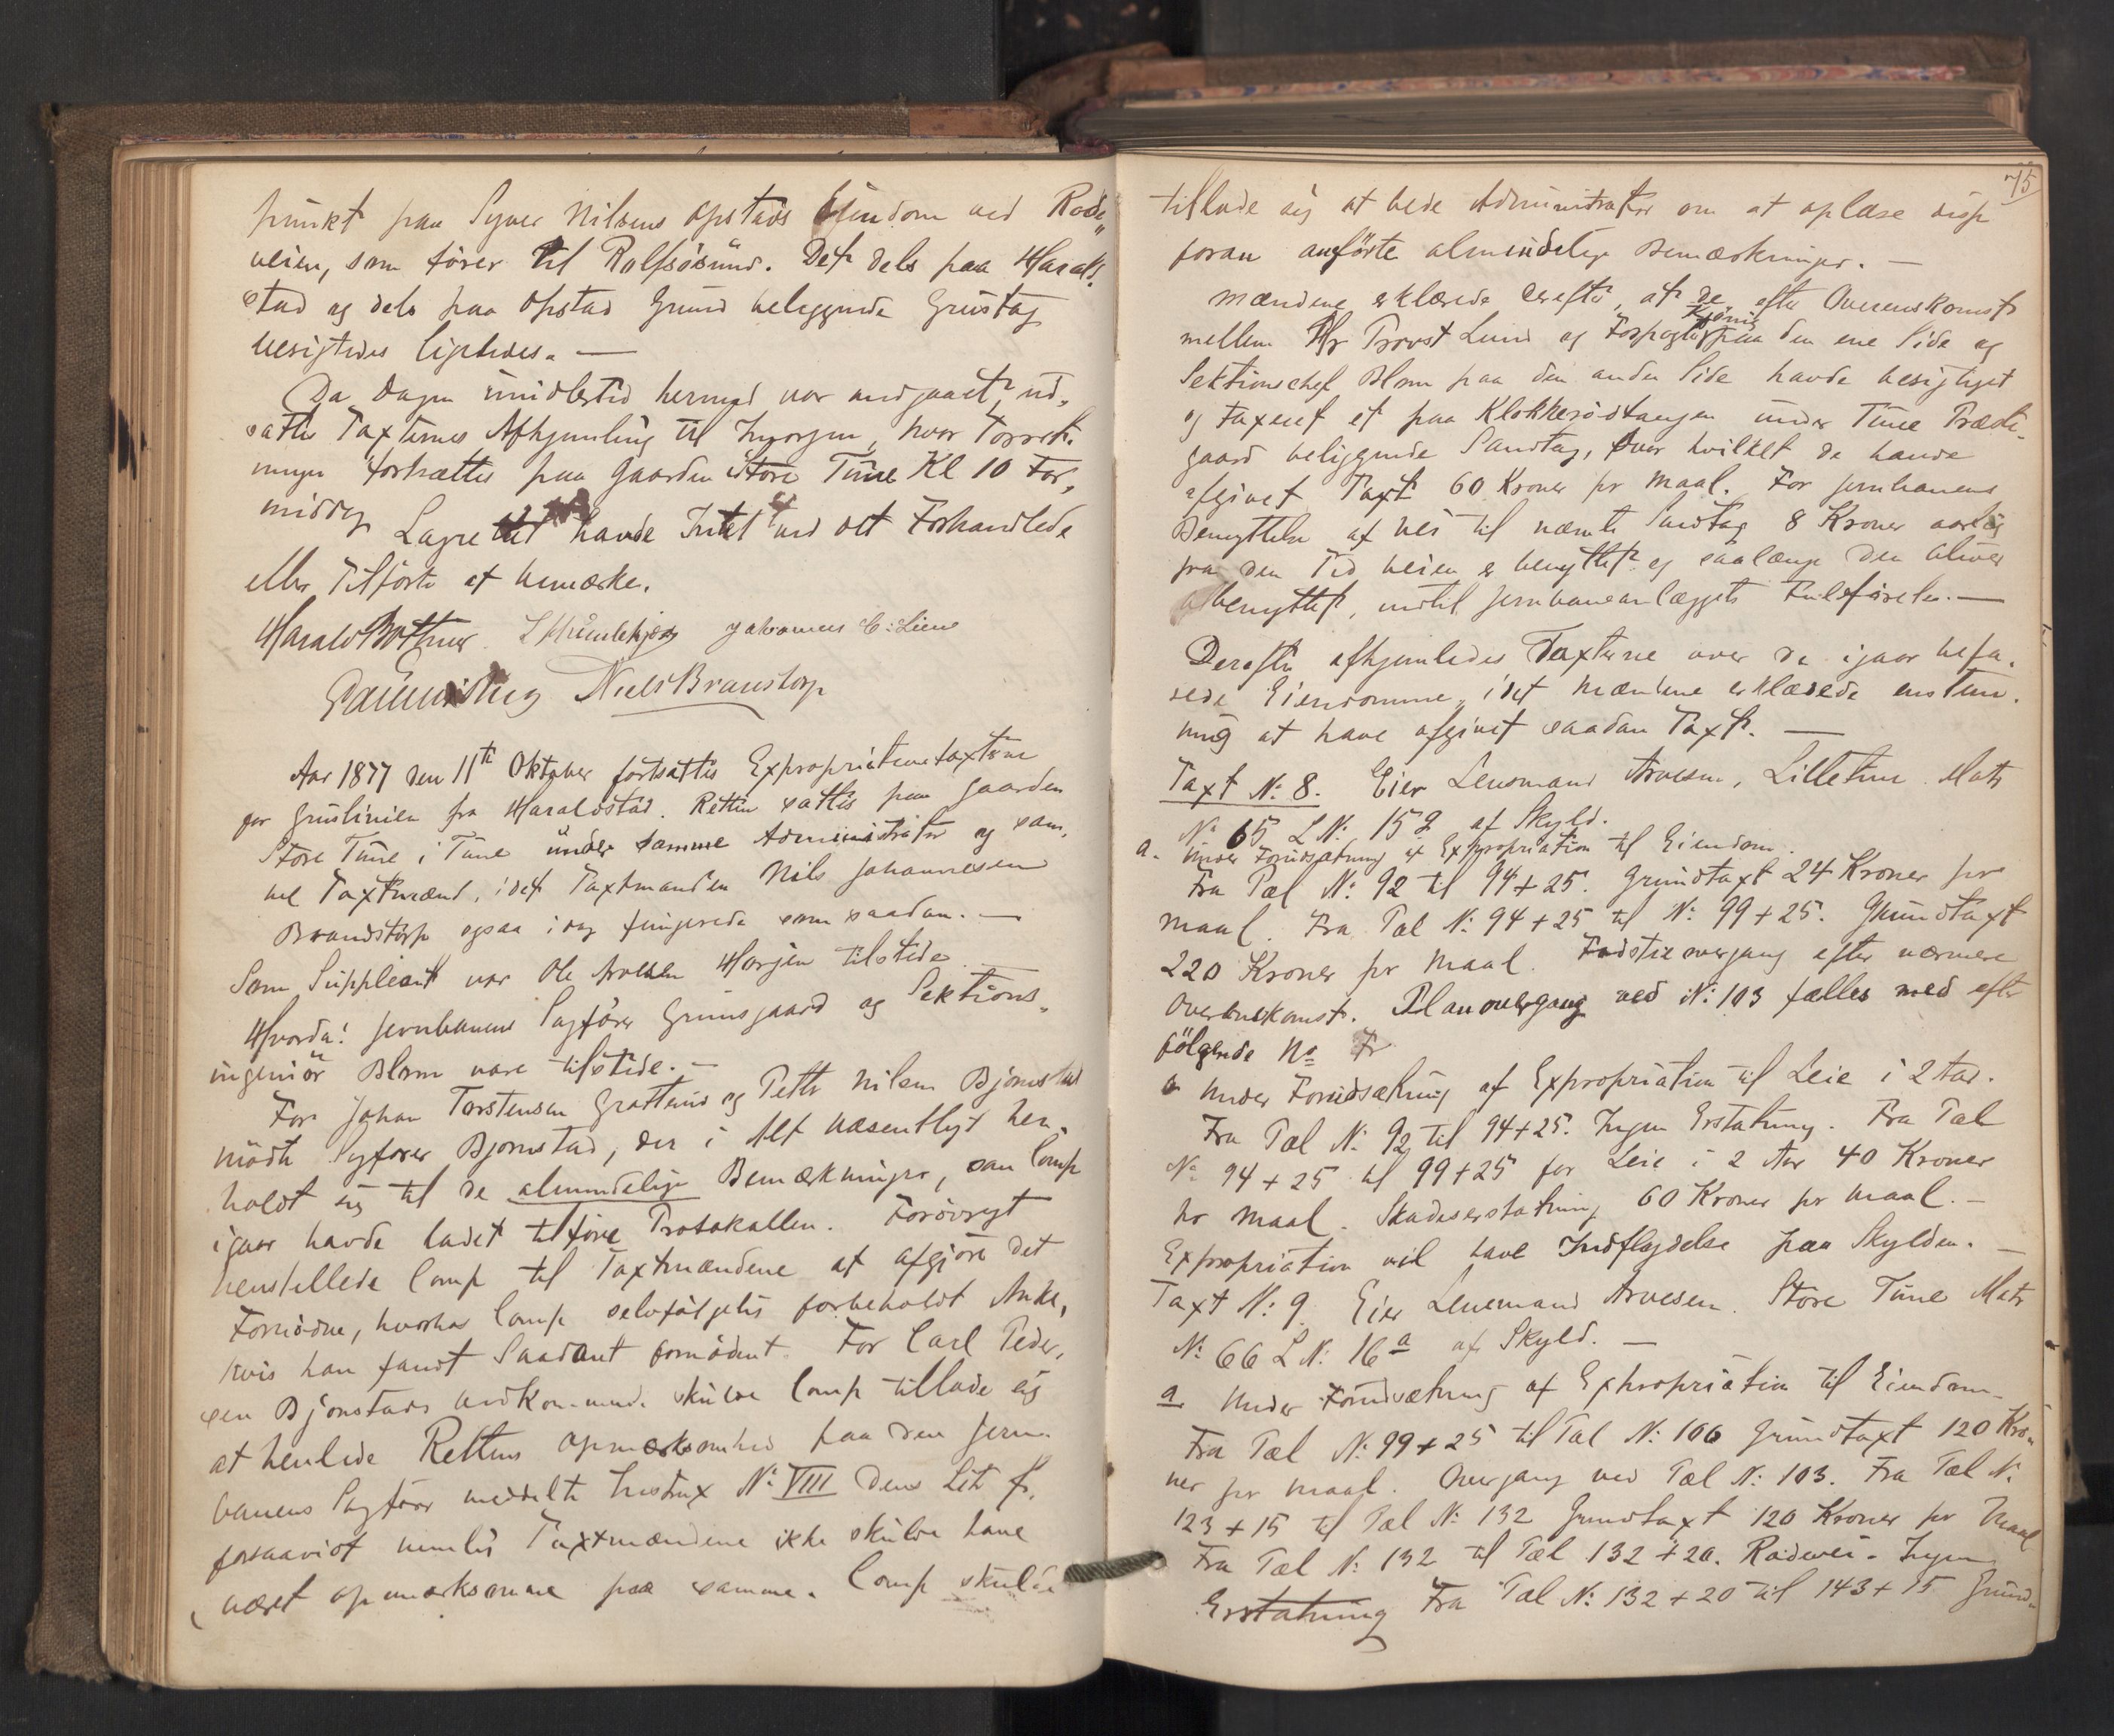 punkt paa Syver Nilsens Opstads Eiendom ved Rode„
veien, som fører til Rolfsösund. Det dels paa Harald„
stad og dels paa Opstad Grund beliggende Grustag
besigtedes ligeledes. —
Da Dagen imidlertid hermed var medgaaet, ud„
sattes Taxternes Afhjemling til Imorgen, hvor Forret„
ningen fortsættes paa Gaarden Store Tune Kl 10 For„
middag
Lagrettet havde Intet ved det Forhandlede
eller Tilførte at bemærke.
Harald Bothner Johannes C: Lien
Niels Branstorp
Aar 1877 den 11te Oktober fortsattes Expropriationstaxterne
for Gruslinien fra Haraldstad. Retten sattes paa Gaarden
Store Tune i Tune under samme Administrator og sam„
me Taxtmænd, idet Taxtmanden Nils Johannesen
Brandstorp ogsaa idag fungerede som saadan. —
Som Suppleant var Ole Arvesen Horgen tilstede
Hvorda! Jernbanens Sagfører Grimsgaard og Sektions„
ingeniör Blom vare tilstede. —
For Johan Torstensen Grotterød og Petter Nilsen Bjørnstad
mödte Sagfører Bjørnstad, der i Alt væsentligt hen„
holdt sig til de almindelige Bemærkninger, som Comp
igaar havde ladet tilføre Protokollen. Forövrigt
henstillede Comp til Taxtmændene at afgjöre det
Fornödne, hvorhos Comp selvfølgelig forbeholdt Anke,
hvis han fandt Saadant fornødent. For Carl Peder„
sen Bjønstads vedkommende skulde Comp tillade sig
at henlede Rettens Opmærksomhed paa den Jern„
banens Sagfører meddelte Instrux No VIII dens Lit f.
forsaavidt nemlig Taxtmændene ikke skulde have
været opmærksomme paa samme. Comp skulde
75
tillade sig at bede Administrator om at oplæse disse
foran anførte almindelige Bemærkninger. —
Mændene erklærede derefter, at de efter Overenskomst
mellem Hr Provst Lund og Forpagter paa den ene Side og
Sektionschef Blom paa den anden Side havde besigtiget
og taxeret et paa Klokkerödtangen under Tune Præste„
gaard beliggende Sandtag, over hvilket de havde
afgivet Taxt 60 Kroner pr Maal. For Jernbanens
Benyttelse af Vei til nævnte Sandtag 8 Kroner aarlig
fra den Tid Veien er benyttet og saalænge den bliver
benyttet, indtil Jernbaneanlæggets Fuldførelse. —
Derefter afhjemledes Taxterne over de igaar befa„
rede Eiendomme, idet Mændene erklærede enstem„
mig at have afgivet saadan Taxt. —
Taxt No 8. Eier Lensmand Arvesen, Lilletune Matr
No 65 L No 15 af Skyld.
a. Under Forudsætning af Expropriation til Eiendom.
Fra Pæl No 92 til 94 + 25. Grundtaxt 24 Kroner pr
Maal. Fra Pæl No 94 + 25 til No 99 + 25. Grundtaxt
220 Kroner pr Maal. Fodstiovergang efter nærmere
Overenskomst. Planovergang ved No 103 fælles med efter
følgende No Fr
Under Forudsætning af Expropriation til Leie i 2 Aar.
Fra Pæl No 92 til 94+25. Ingen Erstatning. Fra Pæl
No 94 + 25 til 99 + 25 for Leie i 2 Aar 40 Kroner
pr Maal. Skadeserstatning 60 Kroner pr Maal. —
Expropriation vil have Indflydelse paa Skylden. —
Taxt No 9. Eier Lensmand Arvesen. Store Tune Matr
No 66 L No 16a af Skyld. —
a. Under Forudsætning af Expropriation til Eiendom—
Fra Pæl No 99 + 25 til Pæl No 106 Grundtaxt 120 Kro„
ner pr Maal. Overgang ved Pæl No 103. Fra Pæl No
123 + 15 til Pæl No 132 Grundtaxt 120 Kroner pr Maal
Fra Pæl No 132 til Pæl 132 + 20. Rodevei. Ingen
Erstatning Fra Pæl No 132 + 20 til 143 + 15 Grund„